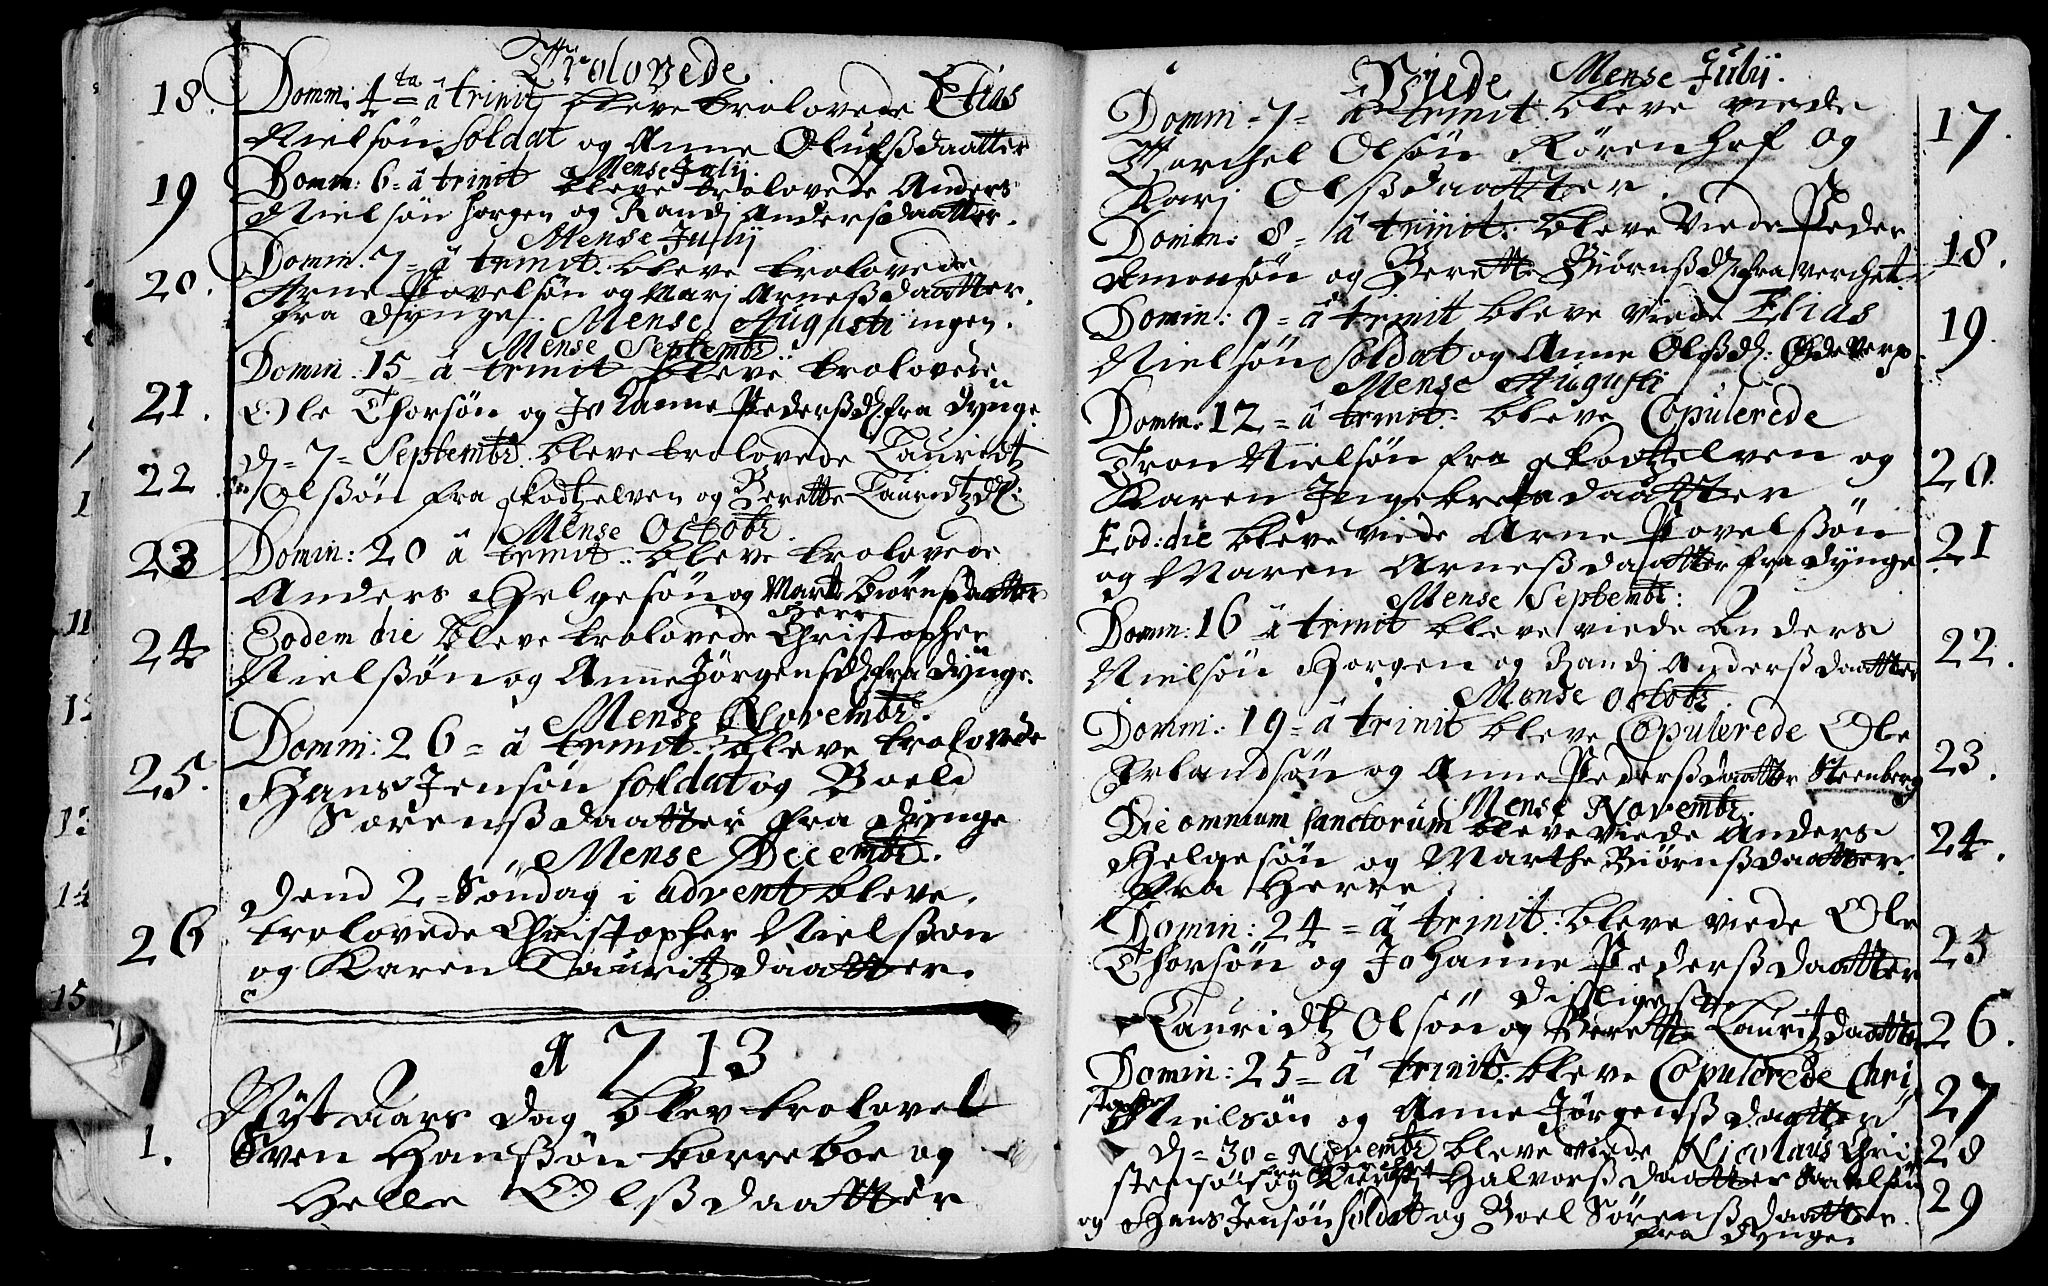 Trolovede
18. Domm: 4ta â trinit bleve trolovede Elias
Nielsøn soldat og Anne Olufsdaatter
Mense Julij.
19 Domm: 6 = â trinit bleve trolovede Anders
Nielsøn horgen og Randj Andersdaatter.
Mense Julij
20. Domm. 7 = â trinit. bleve trolovede
Arne Povelsøn og Marj Arneßdaatter.
fra dynge.
Mense Augusti ingen.
Mense Septembr.
21. Domin: 15 = â trinit bleve trolovede
Ole Thorsøn og Johanne Pederßd: fra dynge
22 d = 7 = Septembr. bleve trolovede Lauridtz
Olßøn fra skodtzelven og Berette Lauridtzd:
Mense Octobr.
23 Domin: 20 â trinit. bleve trolovede
Anders Helgesøn og Marte Biørnsdaatter
Herre
24 Eodem die bleve trolovede Christopher
Nielßøn og Anne Jørgensd: fra dynge.
Mense Novembr.
25. Domm: 26 = â trinit. bleve trolovede
Hans Jensøn soldat og Boeld
Sørenßdaatter fra dynge
Mense Decembr.
26 dend 2 = Søndag i advent bleve
trolovede Christopher Nielßøn
og Karen Lauritzdaatter.
1713
1. Nyt aars dag blev trolovet
Sven Hanßøn borreboe og
Helle Olßdaatter
Viede Mense Julij.
Domm = 7 = â trinit. bleve viede 17.
Torchel Olsøn Rørenhof og
Karj Olßdaatter.
Domm: 8 = â trinit: bleve viede Peder 18.
Amonsøn og Berette Biørnßd: fra verchet
Domin: 9 = â trinit bleve viede Elias 19.
Nielsøn soldat og Anne Olßd:
Mense Augusti
Domm: 12 = â trinit: bleve Copulerede
Tron Nielsøn fra skodtzelven og 20
Karen Ingebretsdaatter
Eod: die bleve viede Arne Povelßøn 21
og Maren Arneßdaatter fra dynge
Mense Septembr:
Domm: 16 â trinit bleve viede Anders 22.
Nielsøn Horgen og Randj Andersßdaatter
Mense Octobr
Domm: 19 = â trinit bleve Copulerede Ole
Erlandsøn og Anne Pedersßdaatter Steenberg 23.
Mense Novembr.
Die omnium sanctorum bleve viede Anders 24.
Helgesøn og Marthe Biørnßdaatter.
fra Herre
Domin: 24 = â trinit: bleve viede Ole
Thorsøn og Johanne Pederßdaatter 25
disligeste
Lauridtz Olsøn og Berette Lauritzdaatter 26.
Domin: 25 = â trinit: bleve Copulerede Chri
stopher Nielsøn og Anne Jørgenßdaatter 27
d = 30 = Novembr bleve viede Nicolaus Chri 28
stensøn og Halvorßdaatter
og Hans Jensøn soldat og Boel Sørenßdaatter. 29
fra dynge.